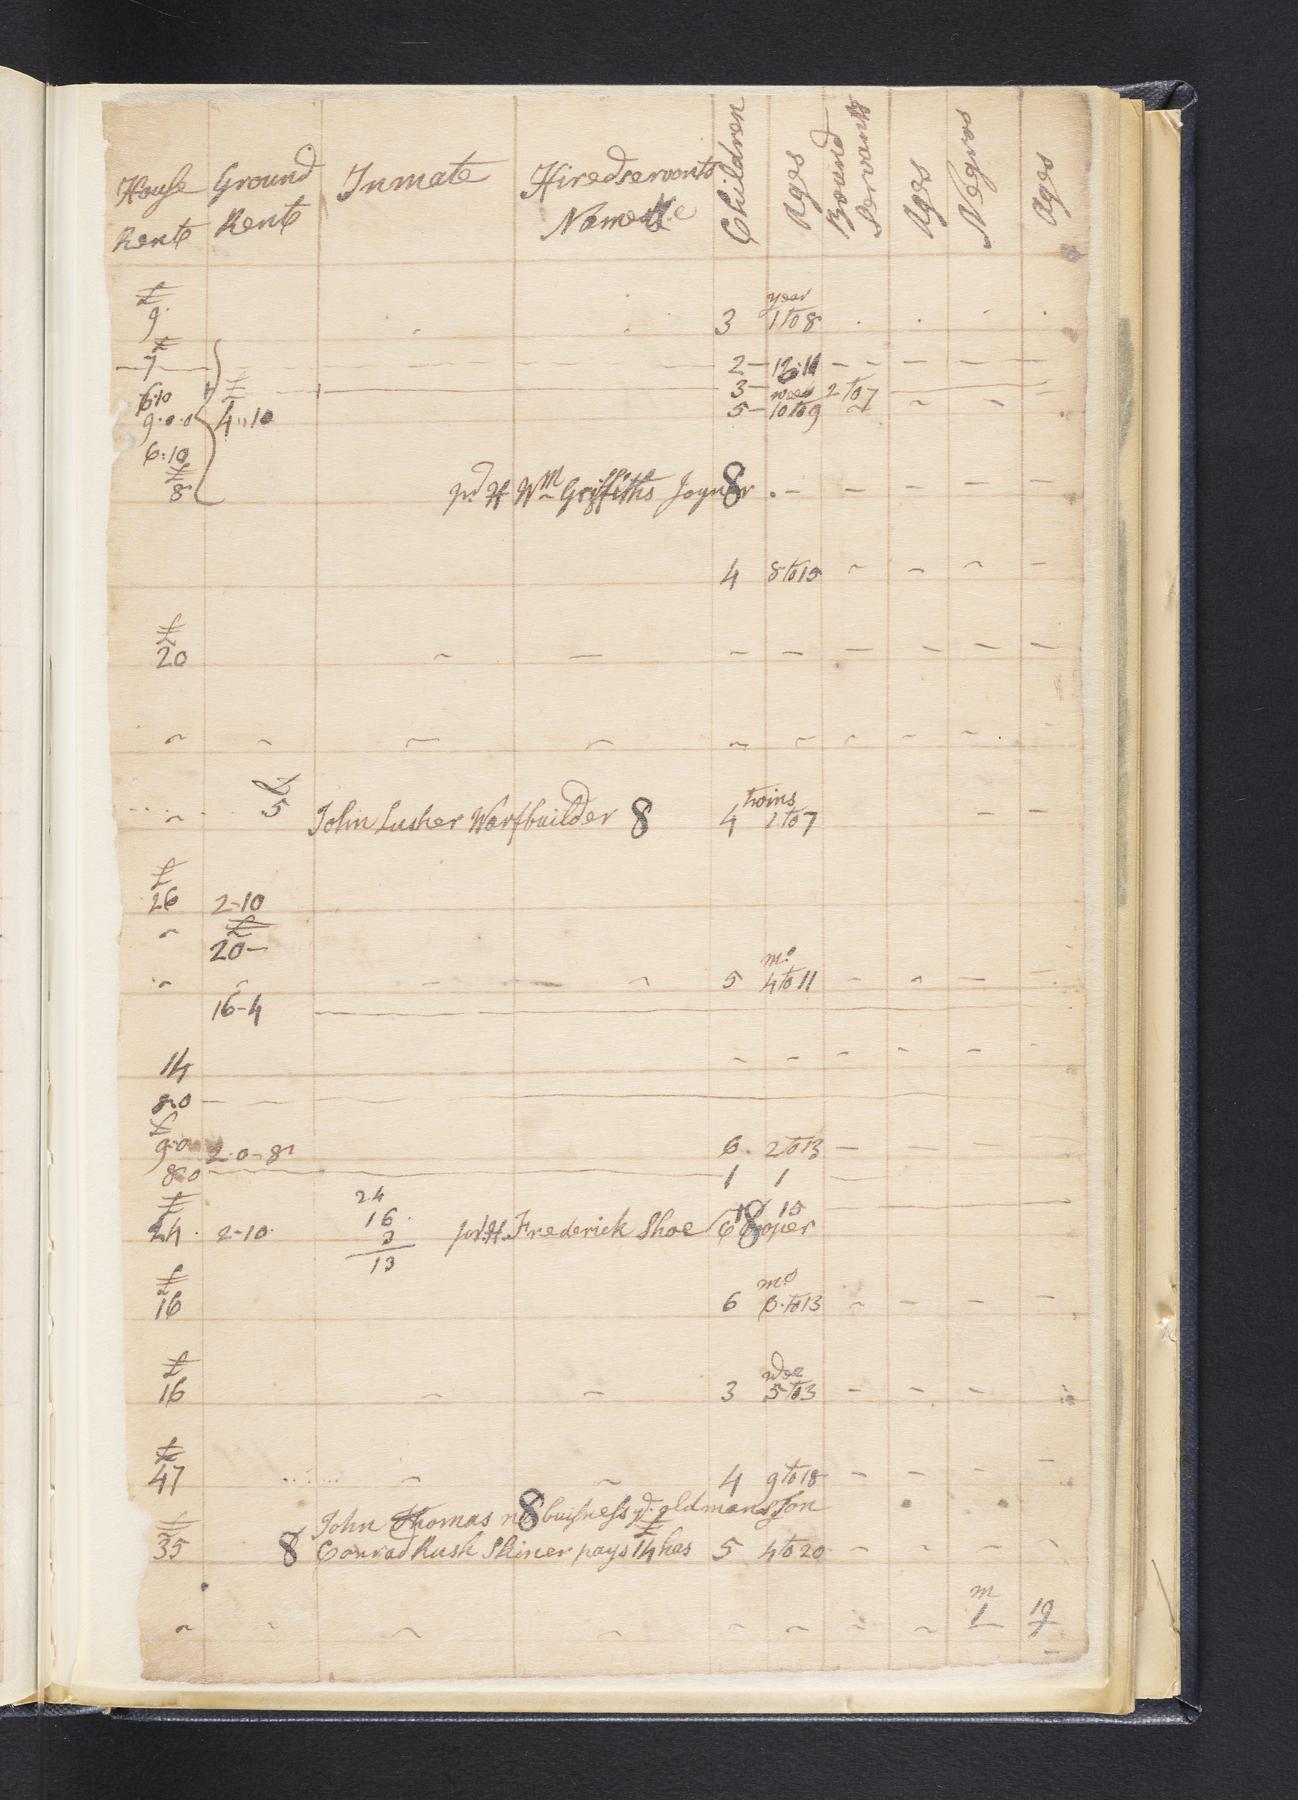 House Rent Ground Rent Inmate Hiredservants Names &c Children Ages Bound Servants Ages Negros Ages
£ year
9 3 1 to 8
£
7 2 — 12 : 11
6:10 3 — week 2 to 7
9..0..0 4,,10 5 — 10 to 9
6:10
£
8 pd H Wm Griffiths Joyner 8
4 8 to 15
£
20
£
5 John Lusher Warfbuilder 8 4 twins 1 to 7
£
26 2-10
£
20 —
mo
5 4 to 11
16-4
14
8..0
£
9..0 2..0..8 6 2 to 13
8..0 1 1
24
£ 16 15
24 2-10 3 pd H. Frederick Shoe 6 8 Cooper
13
£ mo
16 6 3 to 13
£
16 3 5 to 3
£
47 4 9 to 18
John Thomas no 8 buisness pd oldmanston
£
35 8 Conrad Rush Skiner pays £14 has 5 4 to 20
m
1 19